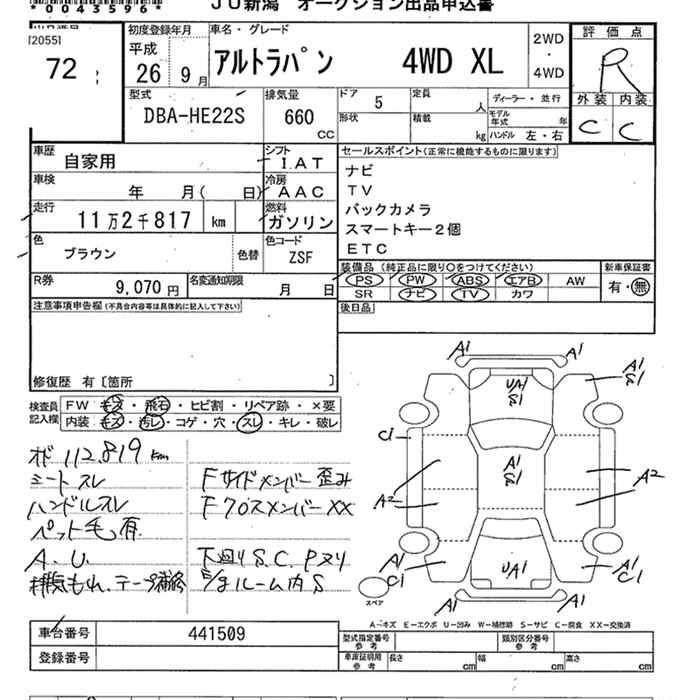 *0004359６*
JU新潟 オークション出品申込書
[2055]
72
初度登録年月
平成 26 9月
車名・グレード
アルトラパン 4WD XL
2WD
・
4WD
評価点
R
外装 内装
C C
型式
DBA-HE22S
排気量
660 cc
ドア
5
定員
人
形状
積載
kg
ディーラー・並行
モデル年式 年
ハンドル 左・右
車歴
自家用
シフト
I.AT
車検
年 月( 日)
冷房
AAC
走行
11万2千817 km
燃料
ガソリン
色
ブラウン
色替
色コード
ZSF
R券
9,070 円
名変通知期限
月 日
セールスポイント(正常に機能するものに限ります)
ナビ
TV
バックカメラ
スマートキー2個
ETC
装備品(純正品に限り○をつけてください)
PS PW ABS エアB AW
SR ナビ TV カワ
新車保証書
有・無
後日品
注意事項申告欄(不具合内容等は具体的に記入して下さい)
修復歴 有〔箇所 〕
検査員記入欄
FW キズ・飛石・ヒビ割・リペア跡・×要
内装 キズ・汚レ・コゲ・穴・スレ・キレ・破レ
112,819 km
シートスレ
ハンドルスレ
ペット毛有
A.U.
排気もれ、テープ補修
Fサイドメンバー歪み
Fクロスメンバーxx
下廻りS.C.Pヌリ
ルーム内S
A1 A1
UA1
S1
A1
S1
C1
A1
S1
A2
A2
A1
C1
UA1
A1
C1
A1 A1
スペア
A-キズ E-エクボ U-凹み W-補修跡 S-サビ C-腐食 XX-交換済
車台番号
441509
登録番号
型式指定番号
参考
類別区分番号
参考
車庫証明用
参考
長さ cm
幅 cm
高さ cm